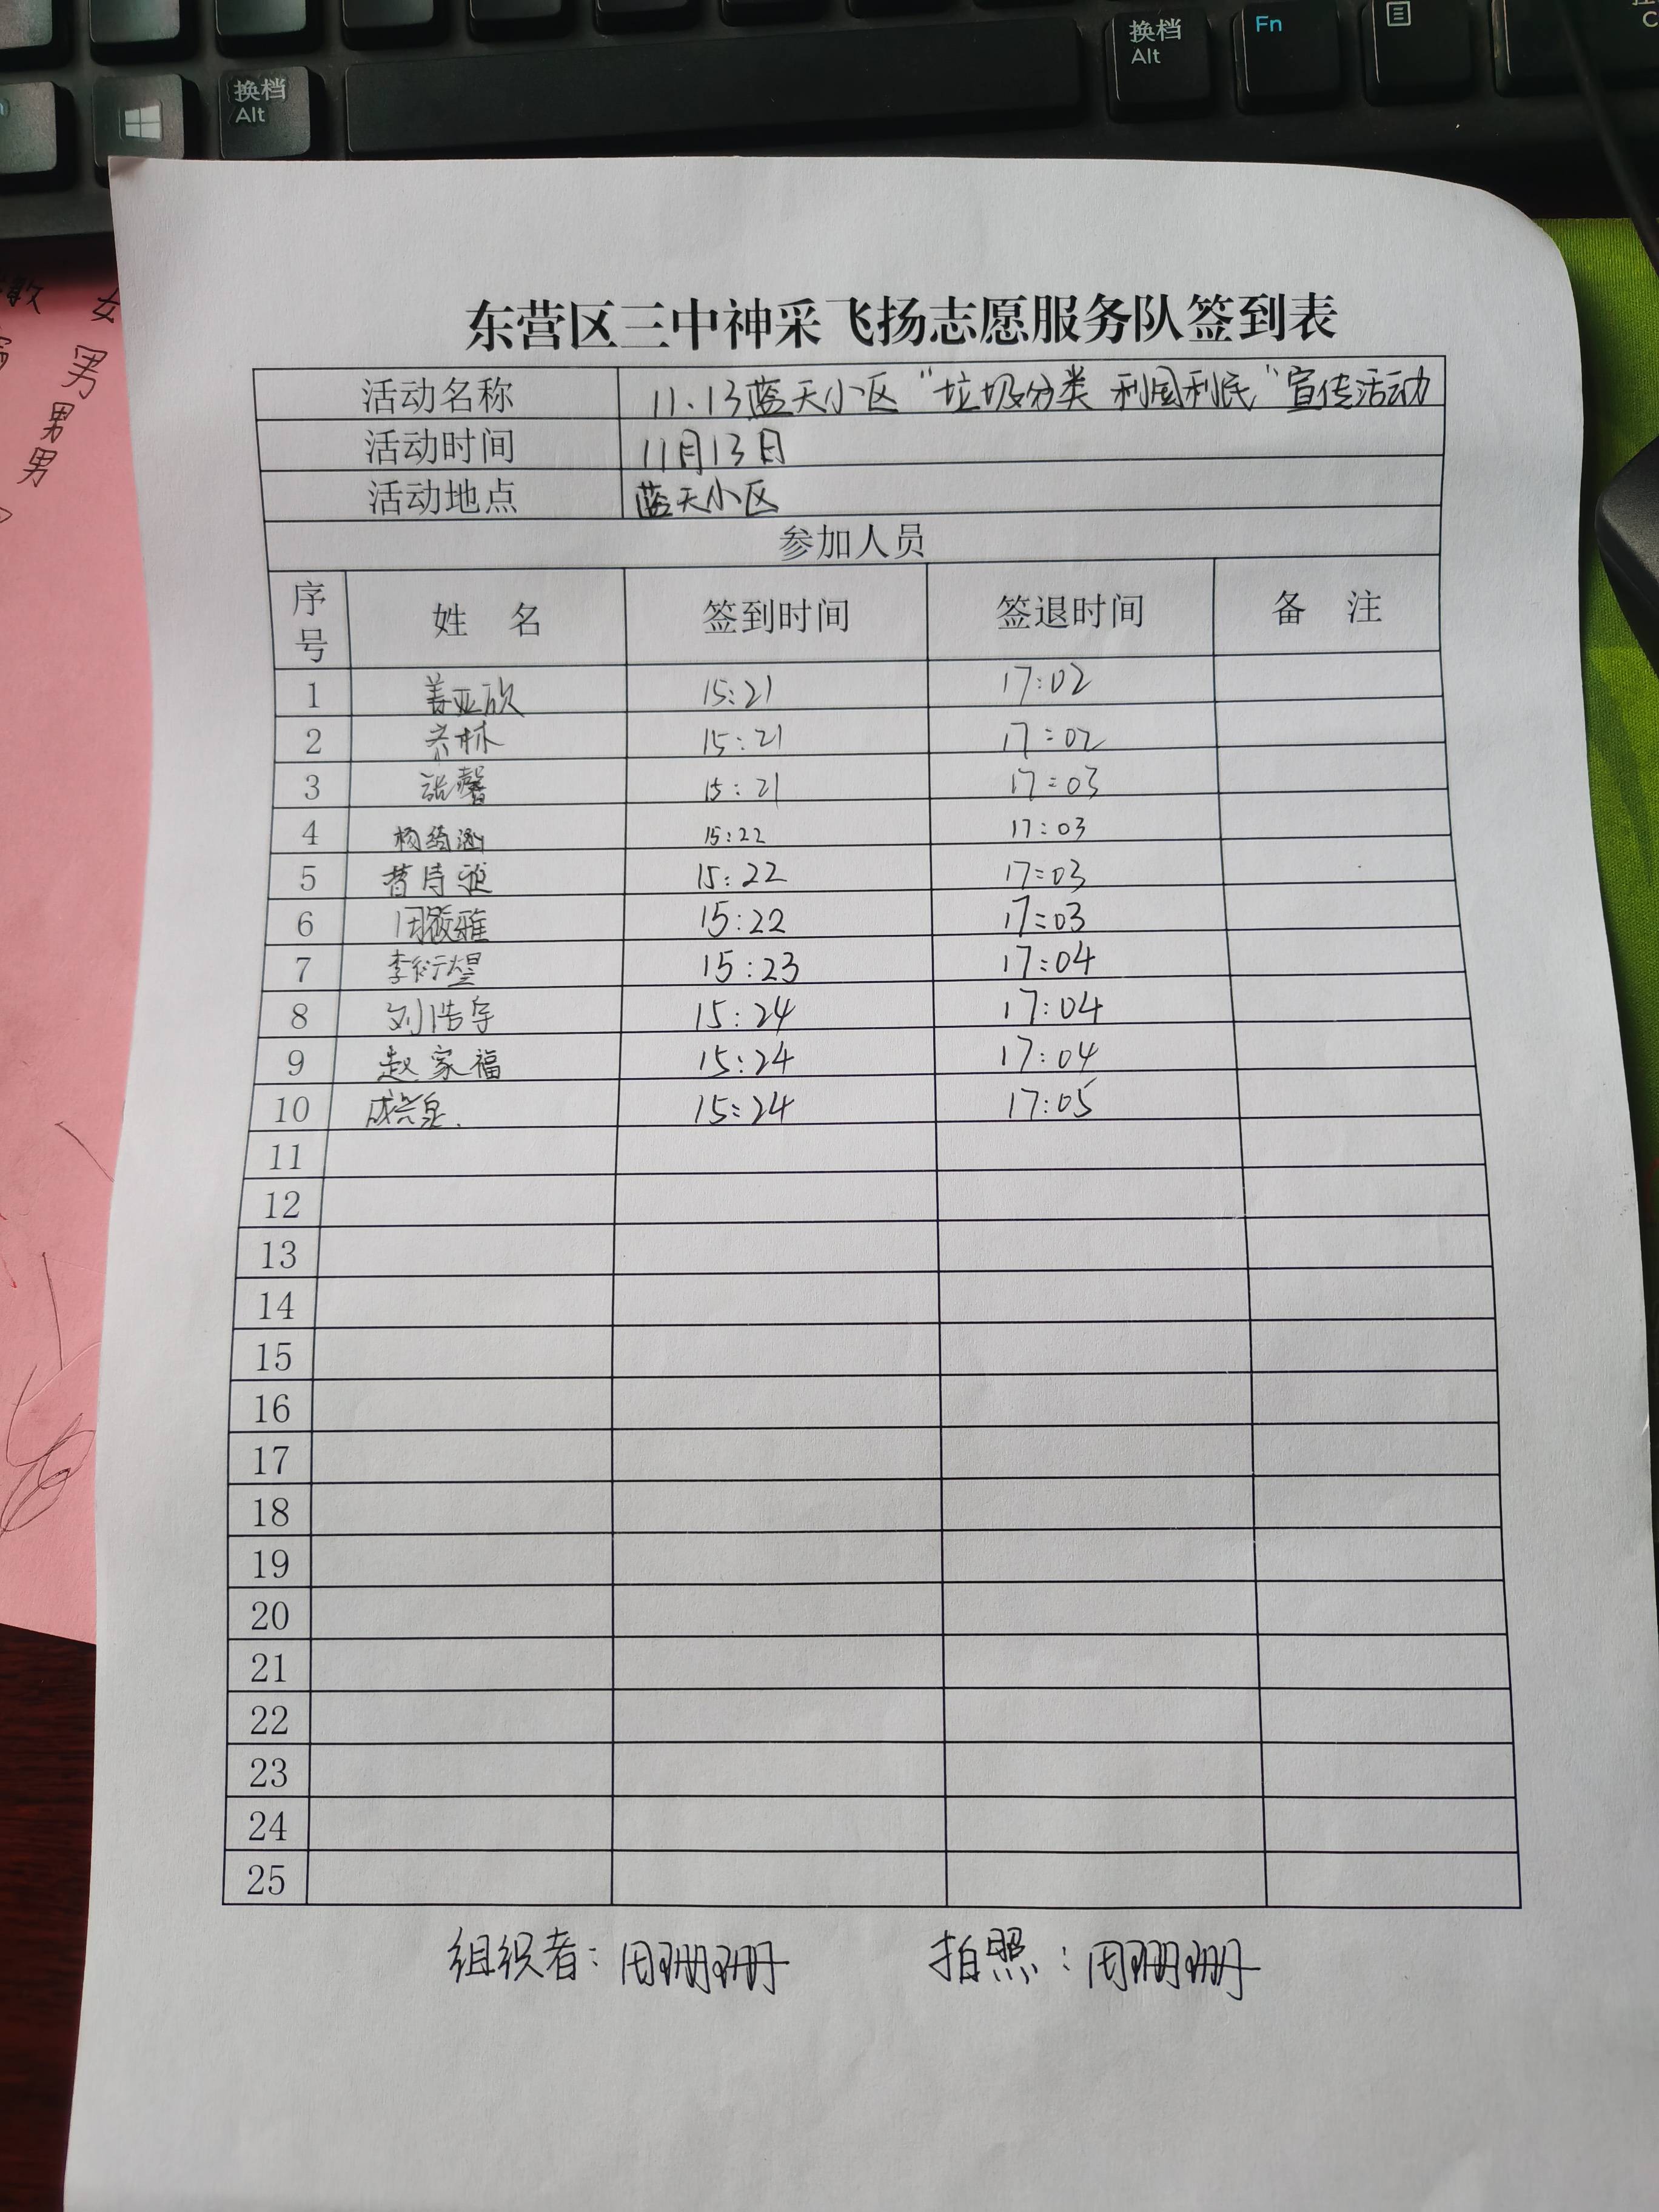 换档
Alt
换档
Alt
Fn
女
男
男
男
东营区三中神采飞扬志愿服务队签到表
活动名称 11.13蓝天小区“垃圾分类 利国利民”宣传活动
活动时间 11月13日
活动地点 蓝天小区
参加人员
序号 姓 名 签到时间 签退时间 备 注
1 姜亚欣 15:21 17:02
2 林 15:21 17:02
3 张馨 15:21 17:03
4 杨绮涵 15:22 17:03
5 15:22 17:03
6 周筱雅 15:22 17:03
7 李衍 15:23 17:04
8 刘浩宇 15:24 17:04
9 赵家福 15:24 17:04
10 15:24 17:05
11
12
13
14
15
16
17
18
19
20
21
22
23
24
25
组织者：周珊珊 拍照：周珊珊